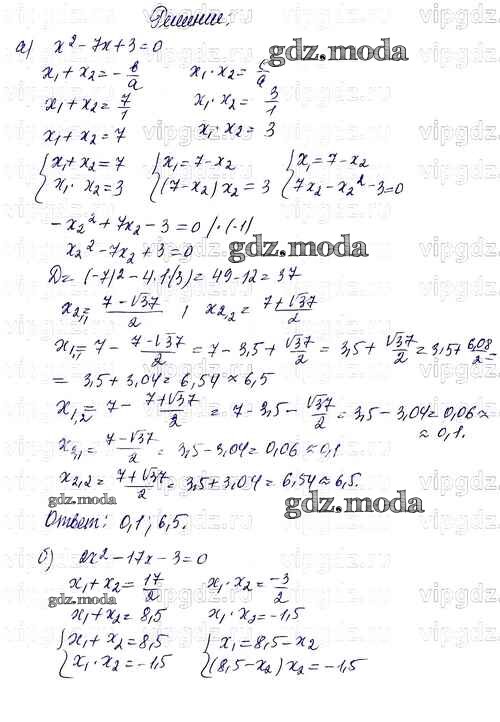 Решение.
а) x² - 7x + 3 = 0
x₁ + x₂ = - в/а    x₁ · x₂ = с/а
x₁ + x₂ = 7/1    x₁ · x₂ = 3/1
x₁ + x₂ = 7    x₁ · x₂ = 3
{ x₁ + x₂ = 7    { x₁ = 7 - x₂    { x₁ = 7 - x₂
{ x₁ · x₂ = 3    { (7 - x₂) x₂ = 3    { 7x₂ - x₂² - 3 = 0
- x₂² + 7x₂ - 3 = 0 | · (-1)
x₂² - 7x₂ + 3 = 0
D = (-7)² - 4 · 1 (3) = 49 - 12 = 37
x₂,₁ = (7 - √37)/2 ; x₂,₂ = (7 + √37)/2
x₁,₁ = 7 - (7 - √37)/2 = 7 - 3,5 + √37/2 = 3,5 + √37/2 = 3,5 + 6,08/2 =
= 3,5 + 3,04 = 6,54 ≈ 6,5
x₁,₂ = 7 - (7 + √37)/2 = 7 - 3,5 - √37/2 = 3,5 - 3,04 = 0,06 ≈
≈ 0,1.
x₂,₁ = (7 - √37)/2 = 3,5 - 3,04 = 0,06 ≈ 0,1
x₂,₂ = (7 + √37)/2 = 3,5 + 3,04 = 6,54 ≈ 6,5.
Ответ: 0,1; 6,5.
б) 2x² - 17x - 3 = 0
x₁ + x₂ = 17/2    x₁ · x₂ = -3/2
x₁ + x₂ = 8,5    x₁ · x₂ = -1,5
{ x₁ + x₂ = 8,5    { x₁ = 8,5 - x₂
{ x₁ · x₂ = -1,5    { (8,5 - x₂) x₂ = -1,5
gdz.moda
gdz.moda
gdz.moda
gdz.moda
gdz.moda
vipgdz.ru